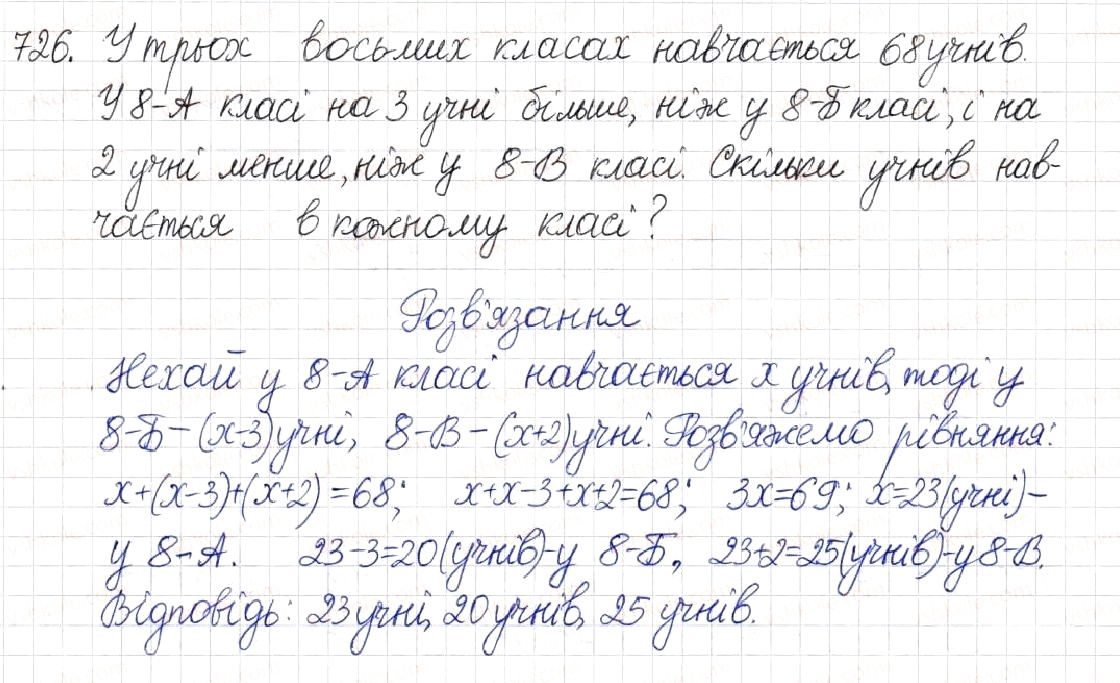 726. У трьох восьмих класах навчається 68 учнів.
У 8-А класі на 3 учні більше, ніж у 8-Б класі, і на
2 учні менше, ніж у 8-В класі. Скільки учнів нав-
чається в кожному класі?
Розв'язання
Нехай у 8-А класі навчається х учнів, тоді у
8-Б - (х-3) учні, 8-В - (х+2) учні. Розв'яжемо рівняння:
х+(х-3)+(х+2)=68; х+х-3+х+2=68; 3х=69; х=23(учні)-
у 8-А. 23-3=20(учнів)-у 8-Б, 23+2=25(учнів)-у 8-В.
Відповідь: 23 учні, 20 учнів, 25 учнів.